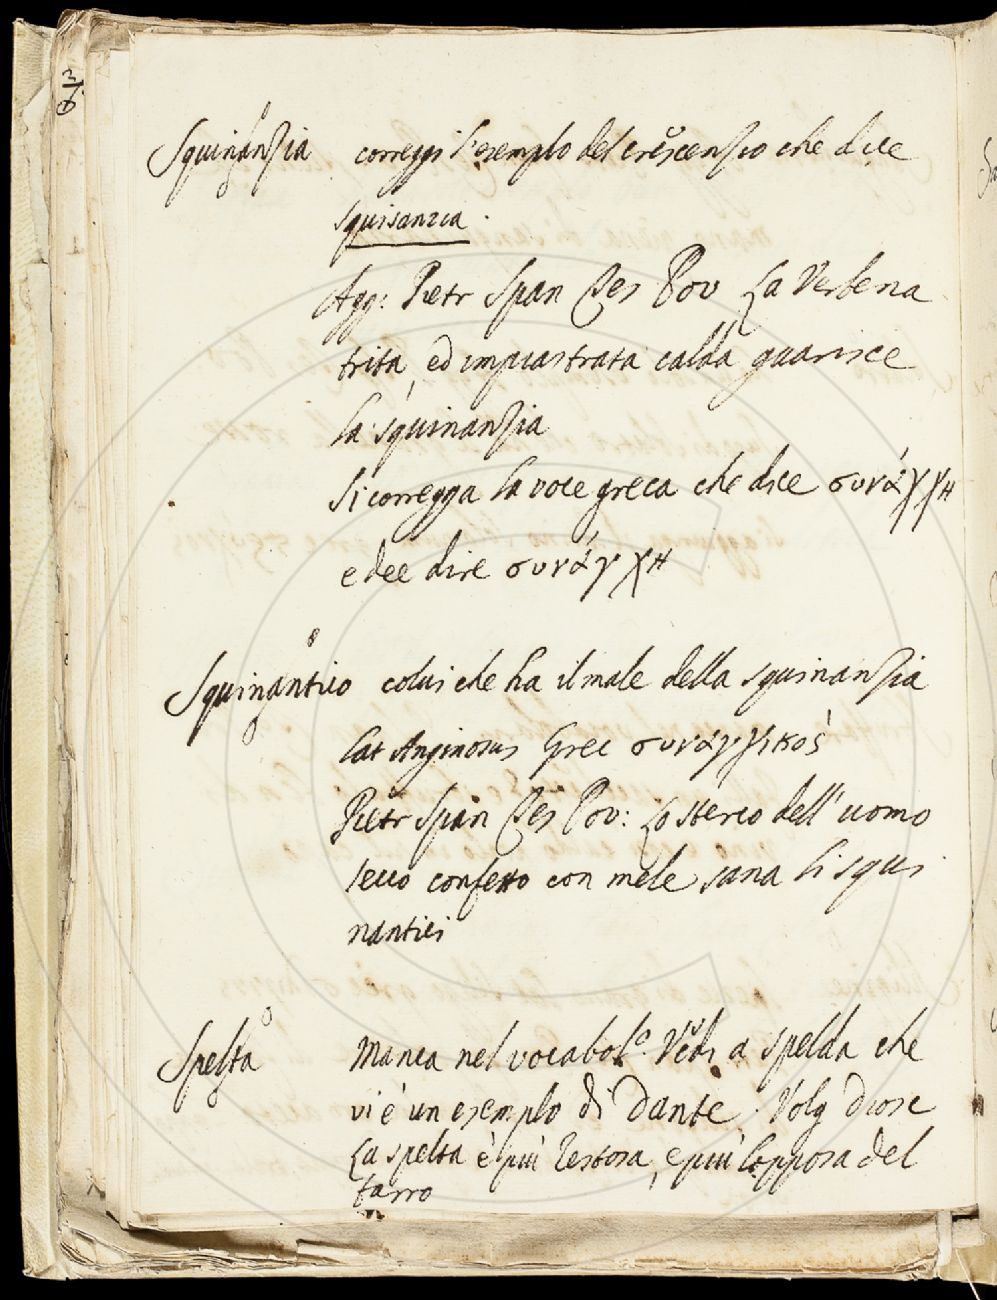 Squinanzia correggi l'esemplo del crescenzio che dice
squisanzia.
Agg: Pietr Span Tes Pov La Verbena
trita, ed impiastrata calda guarisce
la squinanzia
Si corregga la voce greca che dice συνάγχη
e dee dire συνάγχη
Squinantico colui che ha il male della squinanzia
Lat Anginosus Grec συναγχικός
Pietr Span Tes Pov: Lo sterco dell'uomo
secco confetto con mele sana li squi
nantici
Spelta Manca nel vocabol.º Vedi a spelda che
vi è un esemplo di Dante. Volg Diosc
La spelta è più , e più del
farro